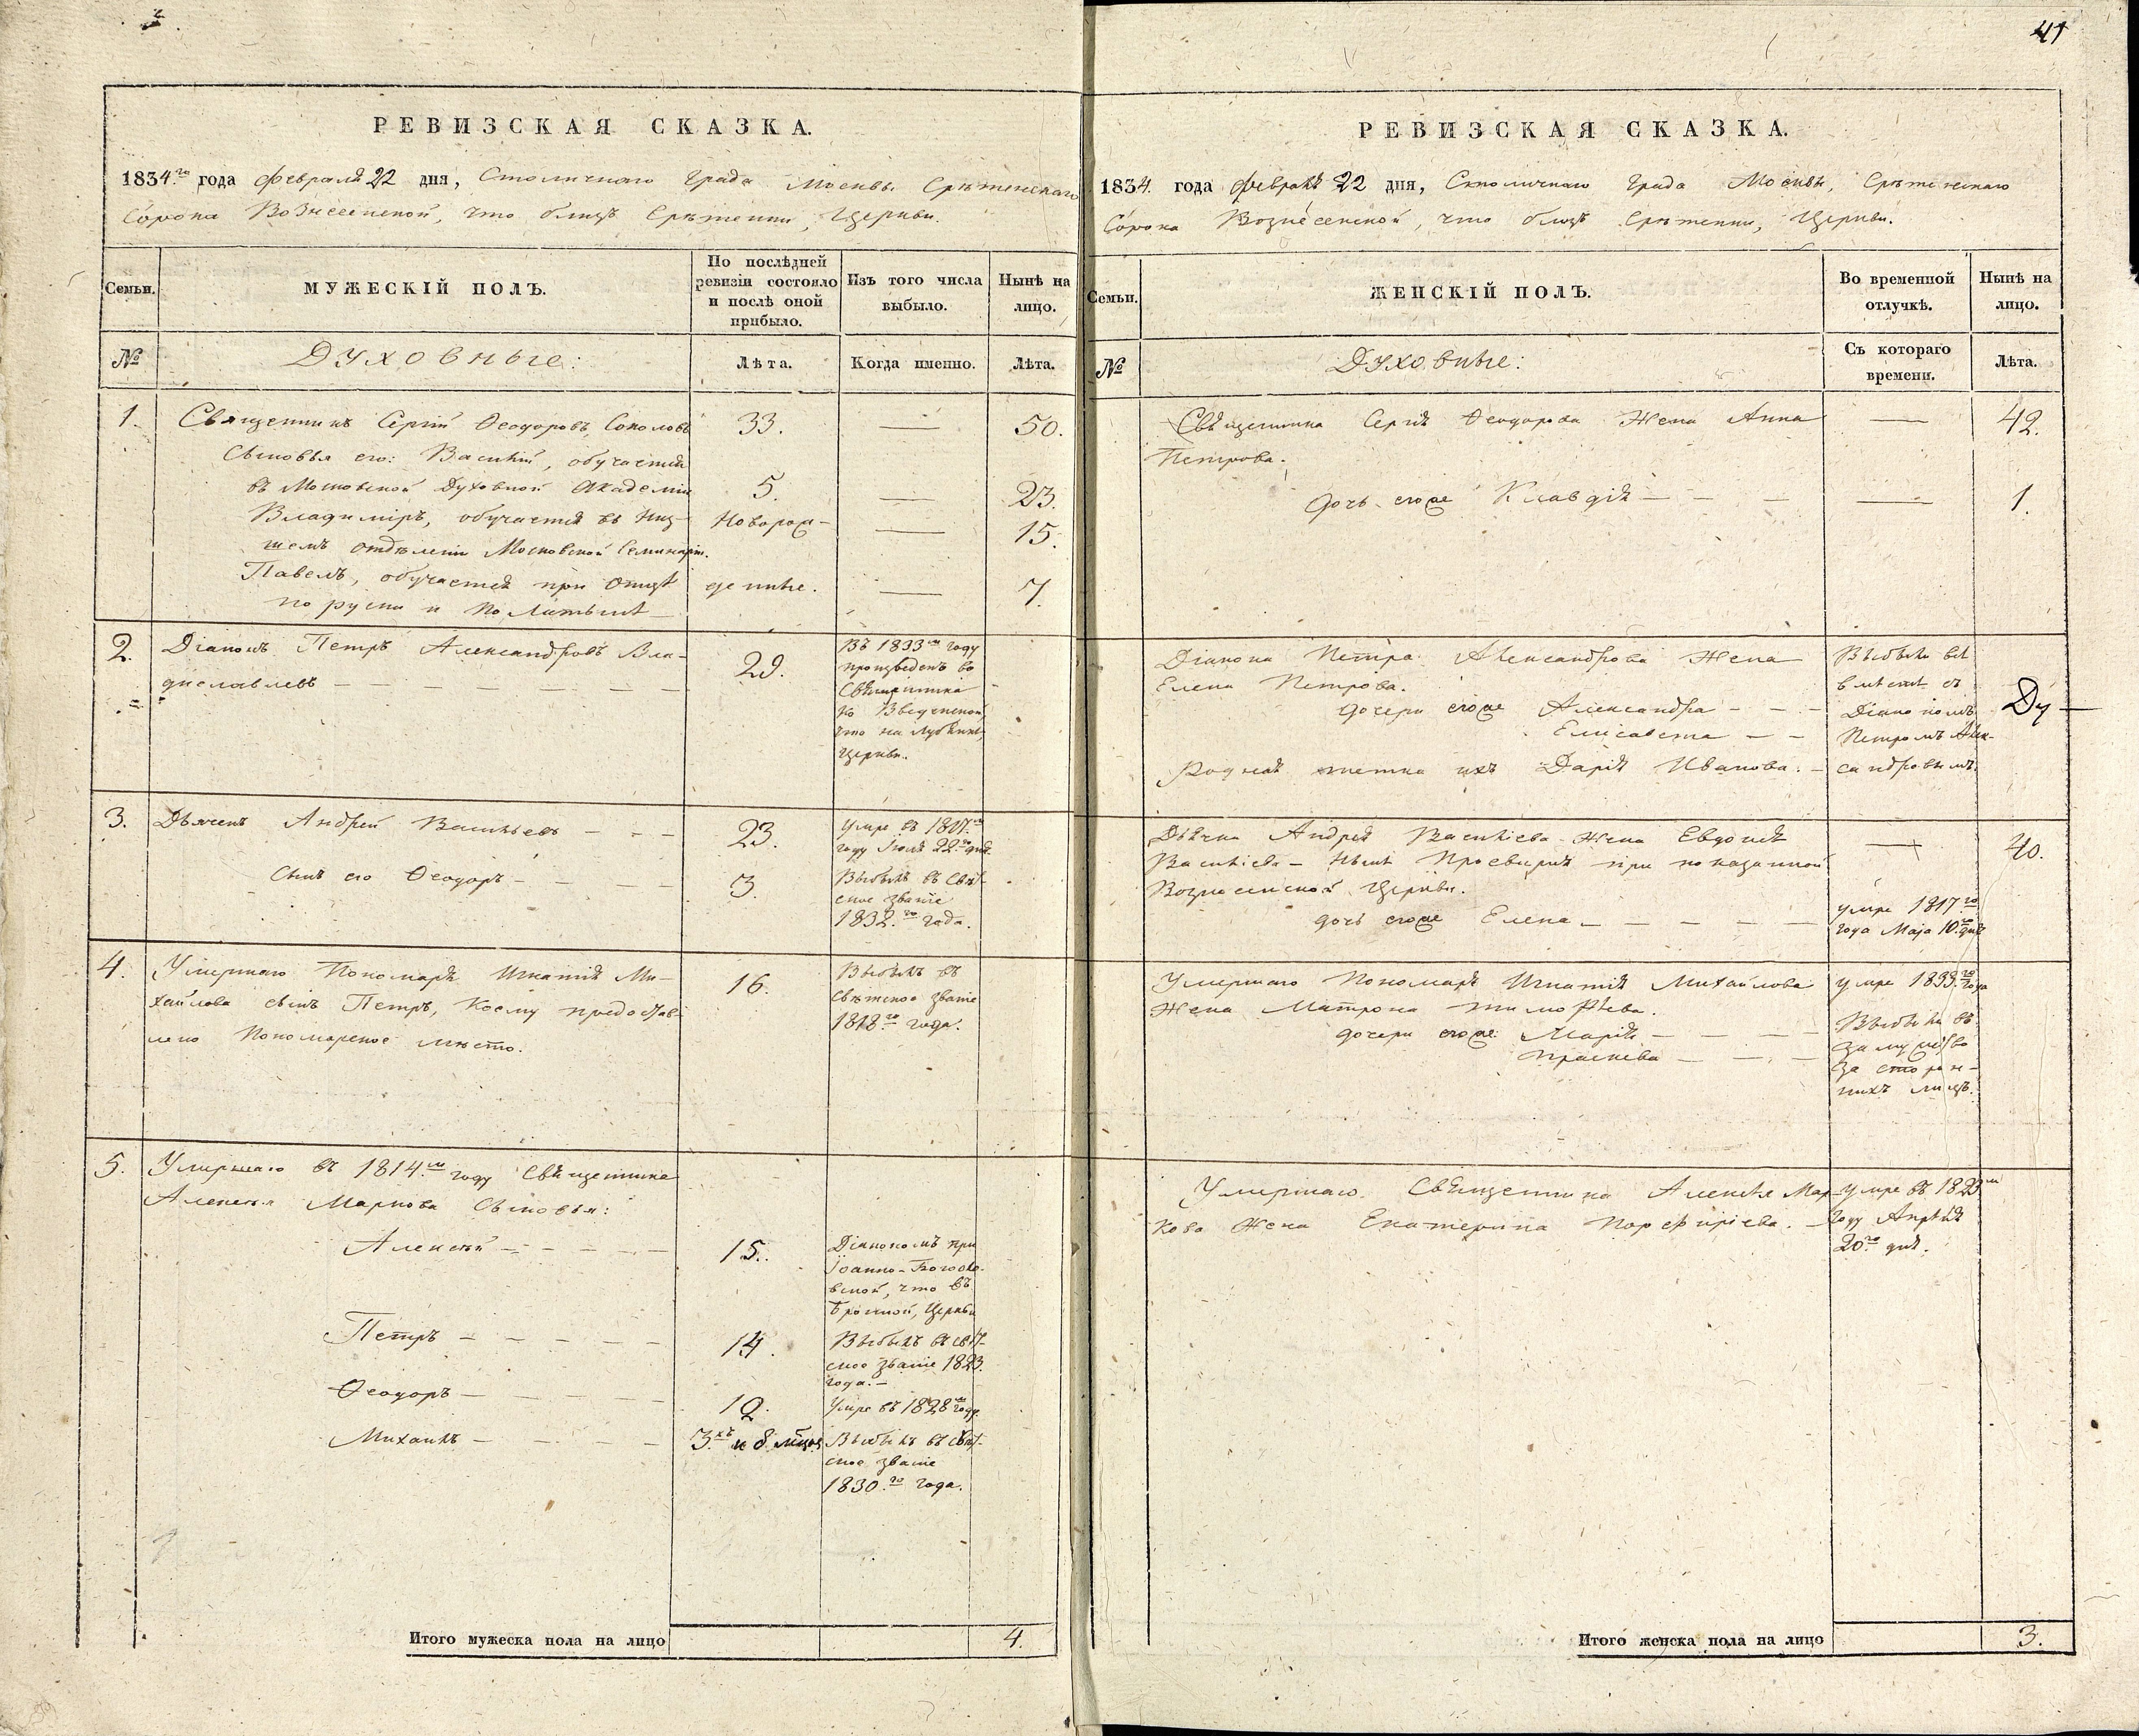 41
РЕВИЗСКАЯ СКАЗКА.
1834.го года февраля 22 дня, Столичнаго Града Москвы Срѣтенскаго
Сорока Вознесенской, что близъ Срѣтенки, Церкви.
Семьи.
МУЖЕСКІЙ ПОЛЪ.
По послѣдней
ревизіи состояло
и послѣ оной
прибыло.
Изъ того числа
выбыло.
Нынѣ на
лицо.
№
Духовные:
Лѣта.
Когда именно.
Лѣта.
1. Священникъ Сергій Ѳеодоровъ Соколовъ 33. — 50.
Сыновья его: Василій, обучается
въ Московской Духовной Академіи 5. — 23.
Владиміръ, обучается въ Низ- Новорож- — 15.
шемъ отдѣленіи Московской Семинаріи.
Павелъ, обучается при Отцѣ денные. — 7.
по руски и по Латынѣ
2. Діаконъ Петръ Александровъ Вла- 29.
диславлевъ
Въ 1833м году
произведенъ во
Священника
ко Введенской
что на Лубянкѣ,
Церкви.
3. Дьячекъ Андрей Васильевъ 23.
Умре въ 1817.м
году Іюля 22.го дня
Сынъ его Ѳеодоръ 3.
Выбылъ въ Свѣт-
ское званіе
1832.го года.
4. Умершаго Пономаря Игнатія Ми- 16.
хайлова сынъ Петръ, коему предостав-
лено Пономарское мѣсто.
Выбылъ въ
свѣтское званіе
1818го года.
5. Умершаго въ 1814.м году Священника
Алексѣя Маркова Сыновья:
Алексѣй 15.
Діакономъ при
Іоанно-Богосло-
вской, что въ
Бронной, Церкви
Петръ 14.
Выбылъ въ свѣт-
ское званіе 1823.
года.
Ѳеодоръ 12.
Умре въ 1828м году.
Михаилъ 3.хъ и 8 мцовъ
Выбылъ въ свѣт-
ское званіе
1830.го года.
Итого мужеска пола на лицо 4.
РЕВИЗСКАЯ СКАЗКА.
1834. года февраля 22 дня, Столичнаго Града Москвы, Срѣтенскаго
Сорока Вознесенской, что близъ Срѣтенки, Церкви.
Семьи.
ЖЕНСКІЙ ПОЛЪ.
Во временной
отлучкѣ.
Нынѣ на
лицо.
№
Духовные:
Съ котораго
времени.
Лѣта.
Священника Сергія Ѳеодорова Жена Анна — 42.
Петрова.
дочь егоже Клавдія — 1.
Діакона Петра Александрова Жена
Елена Петрова.
дочери егоже Александра
Елисавета
Родная тетка ихъ Дарія Иванова.
Выбыли всѣ
вмѣстѣ съ
Діакономъ
Петромъ Алек-
сандровымъ.
Дьячка Андрея Васильева Жена Евдокія — 40.
Васильева - нынѣ Просвирня при показанной
Вознесенской Церкви.
дочь егоже Елена
умре 1817го
года Маія 10.го дня
Умершаго Пономаря Игнатія Михайлова умре 1833.го года
Жена Матрона Тимофѣева.
дочери егоже: Марія
Праскева
Выбыли въ
замужство
за сторон-
нихъ лицъ.
Умершаго Священника Алексѣя Мар-
кова Жена Екатерина Порфиріева.
Умре въ 1823м
году Апрѣля
20.го дня.
Итого женска пола на лицо 3.